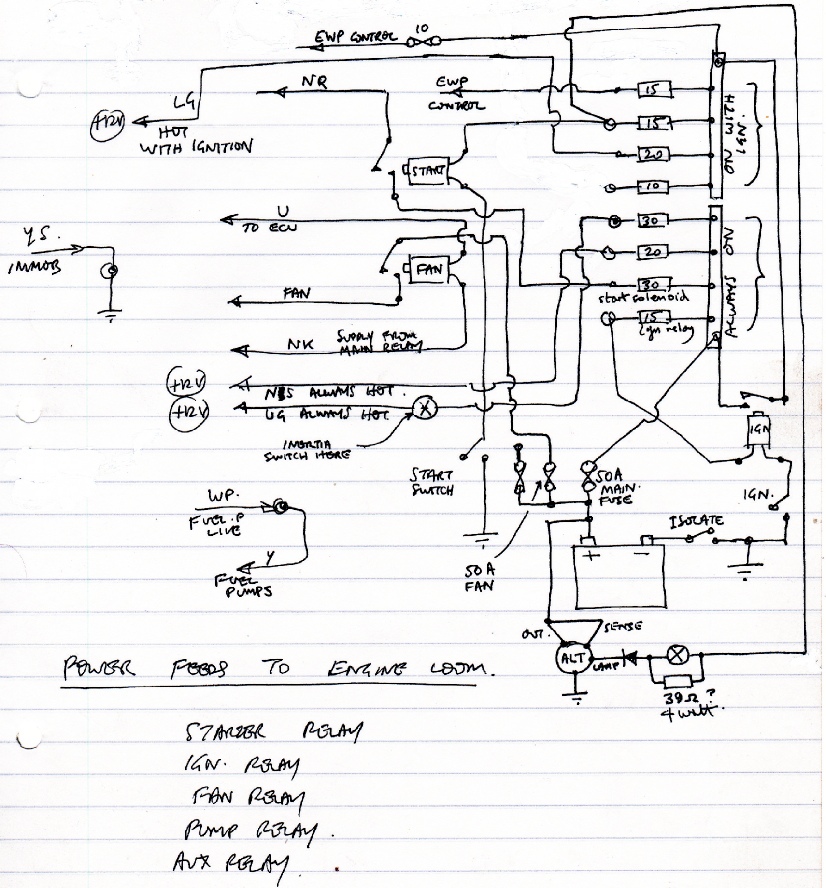 EWP CONTROL 10
LG
NR
EWP
CONTROL
15
+12V
HOT
WITH IGNITION
15
ON WITH
IGN.
START
20
10
U
TO ECU
30
YS.
IMMOB
20
ALWAYS ON
FAN
FAN
30
start solenoid
15
Ign relay
NK
SUPPLY FROM
MAIN RELAY
+12V
ALWAYS HOT.
+12V
UG ALWAYS HOT
X
IGN
INERTIA
SWITCH HERE
START
SWITCH
50A
MAIN
FUSE
IGN.
WP.
FUEL.P
LIVE
ISOLATE
+
-
Y
FUEL
PUMPS
50A
FAN
OUT.
SENSE
ALT
LAMP
39Ω ?
4 watt.
POWER FEEDS TO ENGINE LOOM.
STARTER RELAY
IGN. RELAY
FAN RELAY
PUMP RELAY.
AUX RELAY.